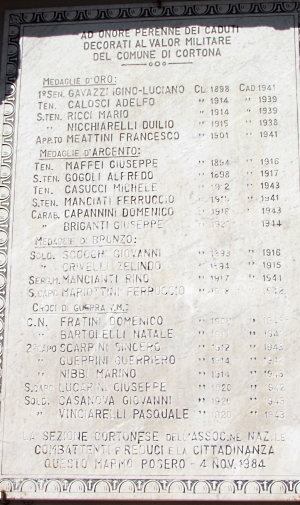 AD ONORE PERENNE DEI CADUTI
DECORATI AL VALOR MILITARE
DEL COMUNE DI CORTONA
MEDAGLIE D'ORO:
1º SEN. GAVAZZI IGINO-LUCIANO CL. 1898 CAD. 1941
TEN. CALOSCI ADELFO " 1914 " 1939
S.TEN. RICCI MARIO " 1914 " 1939
" NICCHIARELLI DUILIO " 1915 " 1938
APP.TO MEATTINI FRANCESCO " 1901 " 1941
MEDAGLIE D'ARGENTO:
TEN. MAFFEI GIUSEPPE " 1894 " 1916
S.TEN. GOGOLI ALFREDO " 1898 " 1917
TEN. CASUCCI MICHELE " " 1943
S.TEN. MANCIATI FERRUCCIO " " 1941
CARAB. CAPANNINI DOMENICO " 1918 " 1943
" BRIGANTI GIUSEPPE " " 1944
MEDAGLIE DI BRONZO:
SOLD. GIOVANNI " 1893 " 1916
" CRIVELLI ZELINDO " 1894 " 1915
MANCIANTI RINO " " 1941
MARIOTTINI FERRUCCIO "
CROCI DI GUERRA V.M.:
C.N. FRATINI DOMENICO
" BARTOLELLI NATALE "
SCARPINI SINCERO " 1912 "
" GUERRINI GUERRIERO " 1914 "
" NIBBI MARINO " 1914 "
LUCARINI GIUSEPPE " 1920 "
SOLD. CASANOVA GIOVANNI " 1920 "
" VINCIARELLI PASQUALE " 1920 "
LA SEZIONE CORTONESE DELL'ASSOC.NE NAZ.LE
COMBATTENTI E REDUCI E LA CITTADINANZA
QUESTO MARMO POSERO - 4 NOV. 1984